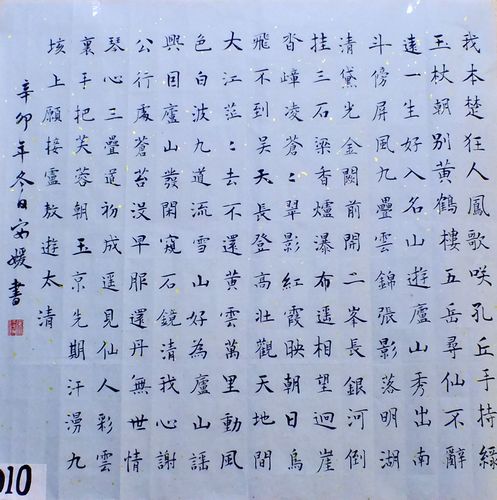 我本楚狂人鳳歌咲孔丘手持緑
玉杖朝別黃鶴樓五岳尋仙不辭
遠一生好入名山遊廬山秀出南
斗傍屏風九疊雲錦張影落明湖
清黛光金闕前開二峯長銀河倒
挂三石梁香爐瀑布遥相望迥崖
沓嶂凌蒼〻翠影紅霞映朝日鳥
飛不到吴天長登高壯觀天地間
大江茫〻去不還黃雲萬里動風
色白波九道流雪山好為廬山謡
興因廬山發閑窺石鏡清我心謝
公行處蒼苔没早服還丹無世情
琴心三疊道初成遥見仙人彩雲
裏手把芙蓉朝玉京先期汗漫九
垓上願接盧敖遊太清
辛卯年冬日安媛書
010